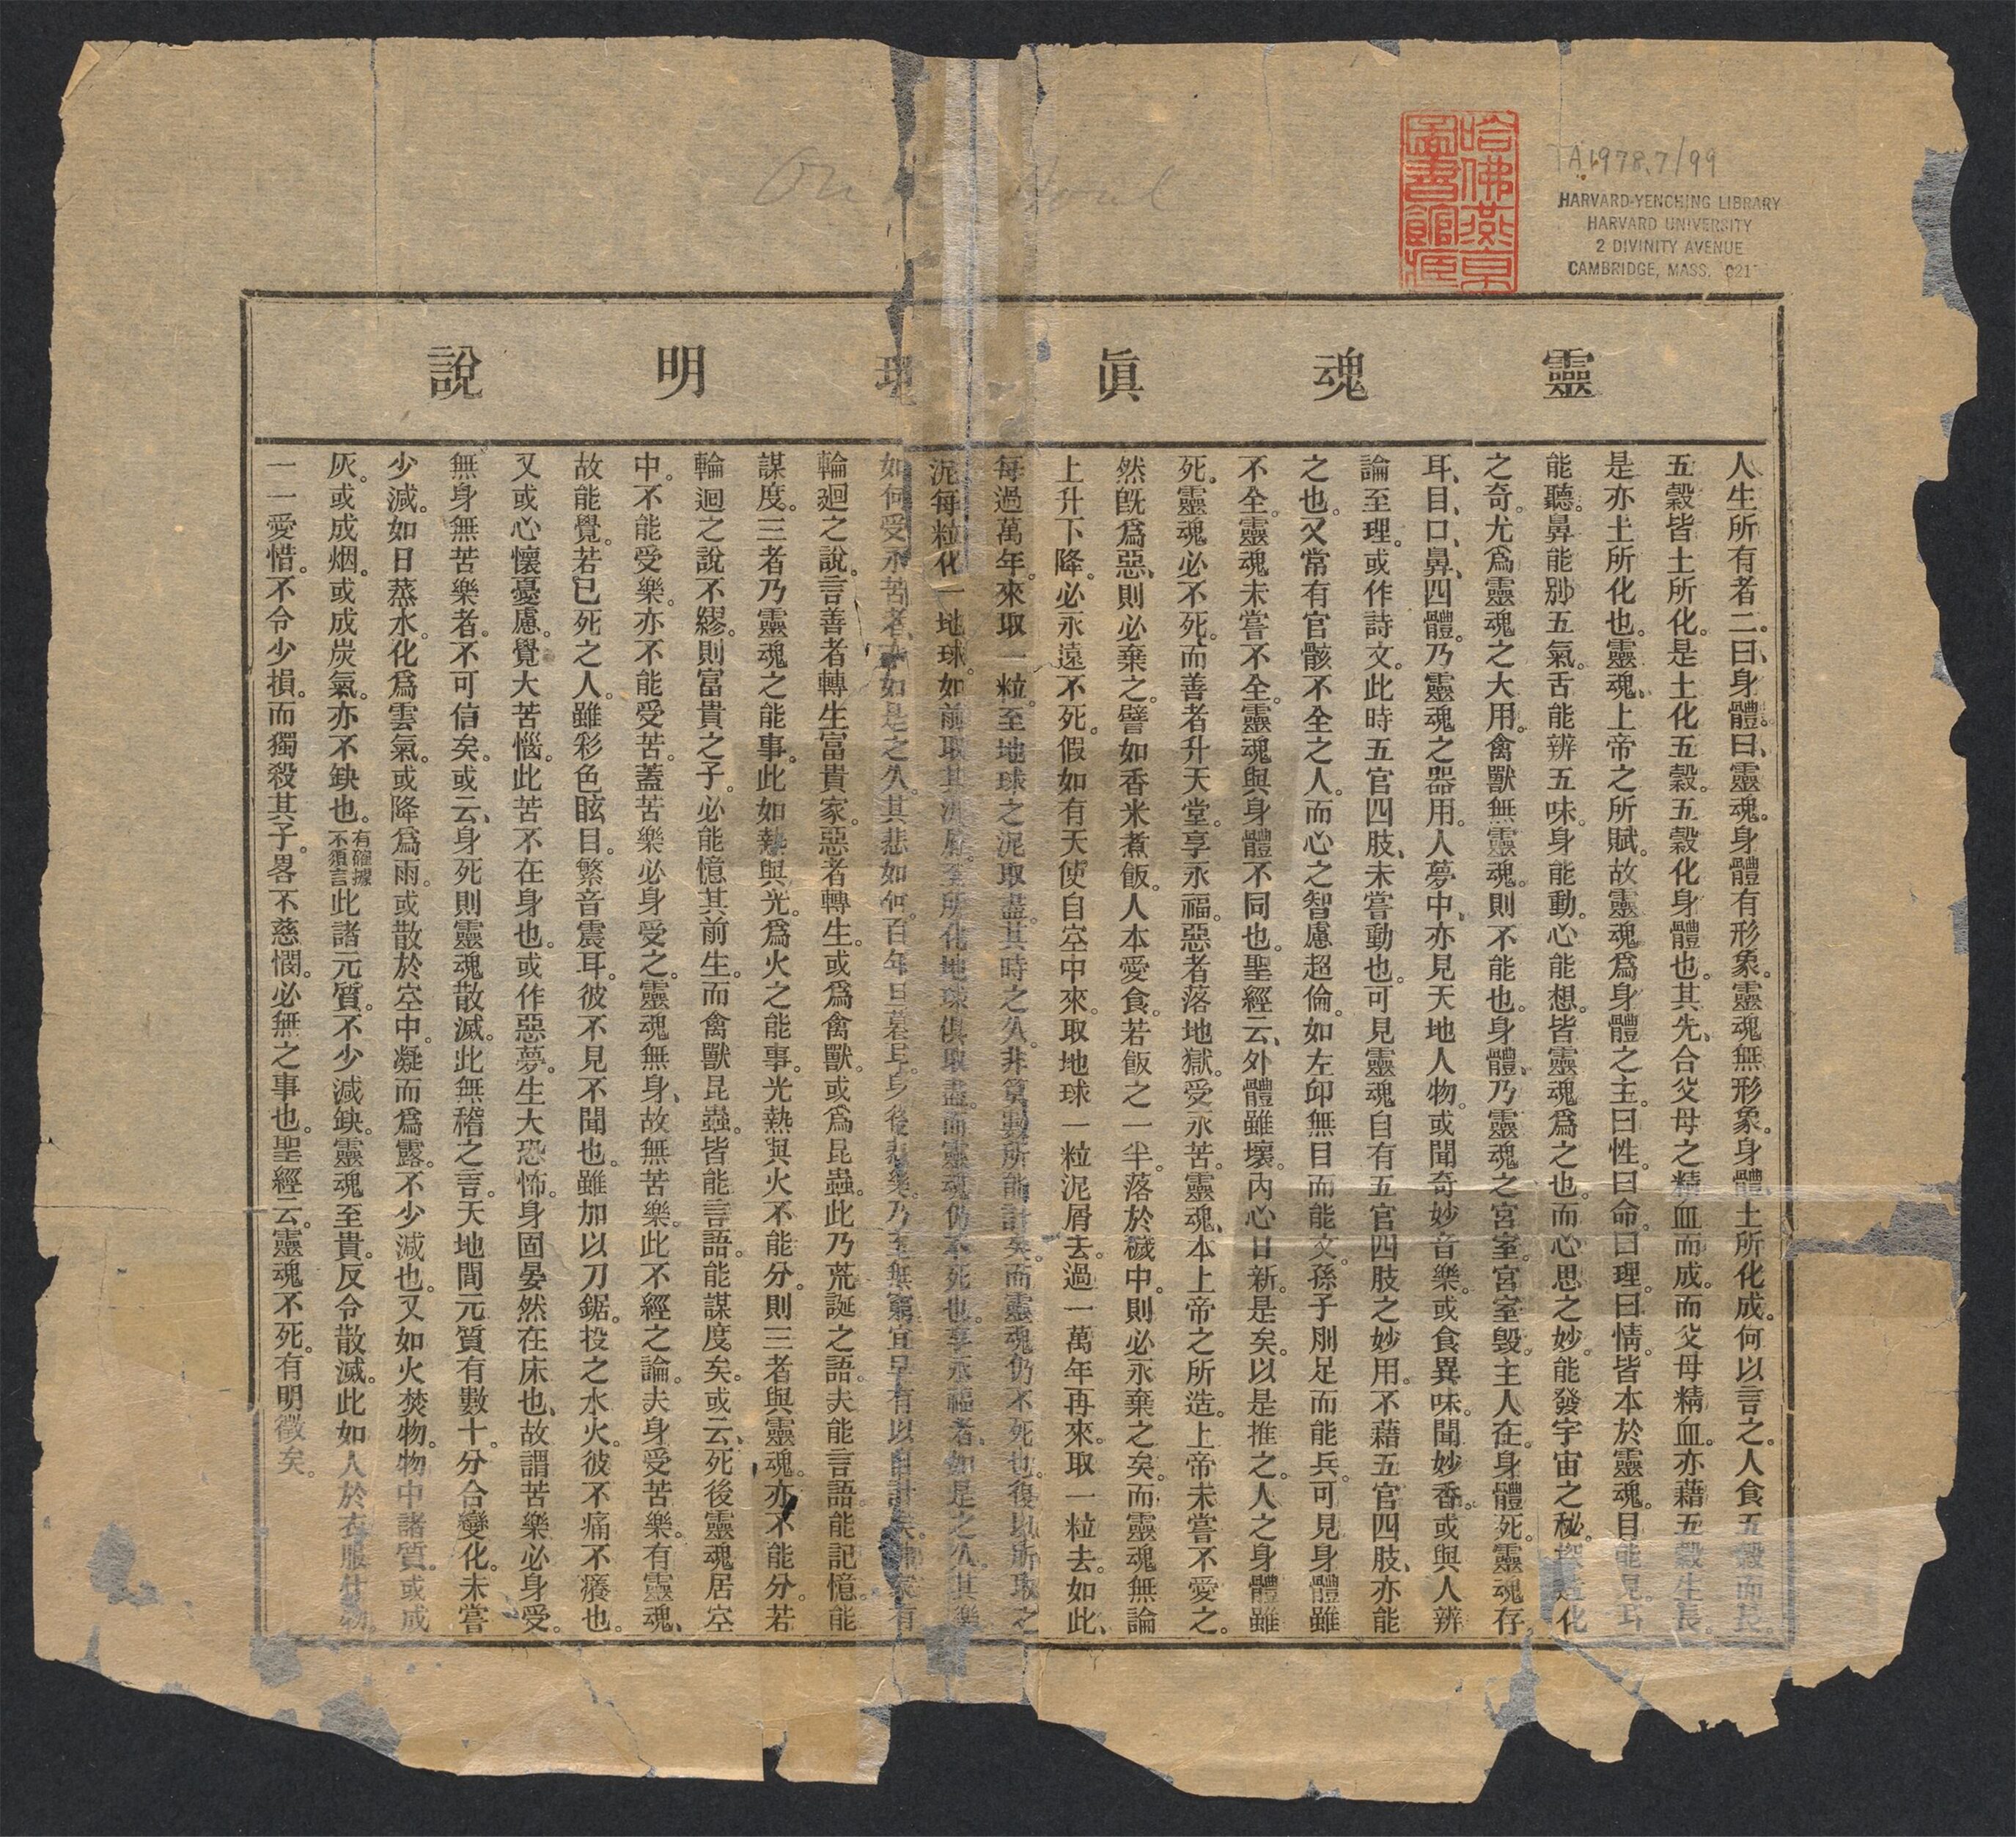 On the Soul
哈佛燕京
圖書館藏
TA 1978.7/99
HARVARD-YENCHING LIBRARY
HARVARD UNIVERSITY
2 DIVINITY AVENUE
CAMBRIDGE, MASS. 021
靈魂眞理明說
人生所有者二。曰、身體。曰、靈魂。身體有形象。靈魂無形象。身體、土所化成。何以言之。人食五穀而長。
五穀皆土所化。是土化五穀。五穀化身體也。其先、合父母之精血而成。而父母精血。亦藉五穀生長。
是亦土所化也。靈魂、上帝之所賦。故靈魂爲身體之主。曰性。曰命。曰理。曰情。皆本於靈魂。目能見。耳
能聽。鼻能別五氣。舌能辨五味。身能動。心能想。皆靈魂爲之也。而心思之妙。能發宇宙之秘。探造化
之奇。尤爲靈魂之大用。禽獸無靈魂。則不能也。身體、乃靈魂之宮室。宮室毀。主人在。身體死。靈魂存。
耳、目、口、鼻、四體。乃靈魂之器用。人夢中、亦見天地人物。或聞奇妙音樂。或食異味。聞妙香。或與人辨
論至理。或作詩文。此時五官四肢、未嘗動也。可見靈魂自有五官四肢之妙用。不藉五官四肢、亦能
之也。又常有官骸不全之人。而心之智慮超倫。如左邱無目而能文。孫子刖足而能兵。可見身體雖
不全。靈魂未嘗不全。靈魂與身體不同也。聖經云、外體雖壞。內心日新。是矣。以是推之。人之身體雖
死。靈魂必不死。而善者升天堂。享永福。惡者落地獄。受永苦。靈魂、本上帝之所造。上帝未嘗不愛之。
然旣爲惡、則必棄之。譬如香米煮飯。人本愛食。若飯之一半。落於穢中。則必永棄之矣。而靈魂無論
上升下降。必永遠不死。假如有天使自空中來。取地球一粒泥屑去。過一萬年再來。取一粒去。如此、
每過萬年。來取一粒。至地球之泥取盡。其時之久。非算數所能計矣。而靈魂仍不死也。復以所取之
泥每粒化一地球。如前取其泥屑。至所化地球俱取盡。而靈魂仍不死也。享永福者、如是之久。其樂
如何。受永苦者、亦如是之久。其悲如何。百年旦暮耳。身後悲樂。乃至無窮。宜早有以自計矣。佛家有
輪廻之說。言善者轉生富貴家。惡者轉生。或爲禽獸。或爲昆蟲。此乃荒誕之語。夫能言語。能記憶。能
謀度。三者乃靈魂之能事。此如熱與光。爲火之能事。光熱與火不能分。則三者與靈魂。亦不能分。若
輪迴之說不繆。則富貴之子。必能憶其前生。而禽獸昆蟲。皆能言語。能謀度矣。或云、死後靈魂居空
中。不能受樂。亦不能受苦。蓋苦樂必身受之。靈魂無身、故無苦樂。此不經之論。夫身受苦樂。有靈魂、
故能覺。若已死之人。雖彩色眩目。繁音震耳。彼不見不聞也。雖加以刀鋸。投之水火。彼不痛不癢也。
又或心懷憂慮。覺大苦惱。此苦不在身也。或作惡夢。生大恐怖。身固晏然在床也、故謂苦樂必身受。
無身無苦樂者。不可信矣。或云、身死則靈魂散滅。此無稽之言。天地間元質有數十。分合變化。未嘗
少減。如日蒸水。化爲雲氣。或降爲雨。或散於空中。凝而爲露。不少減也。又如火焚物。物中諸質。或成
灰。或成烟。或成炭氣。亦不缺也。有確據不須言此諸元質。不少減缺。靈魂至貴。反令散滅。此如人於衣服什物。
一一愛惜。不令少損。而獨殺其子。畧不慈憫。必無之事也。聖經云。靈魂不死。有明徵矣。